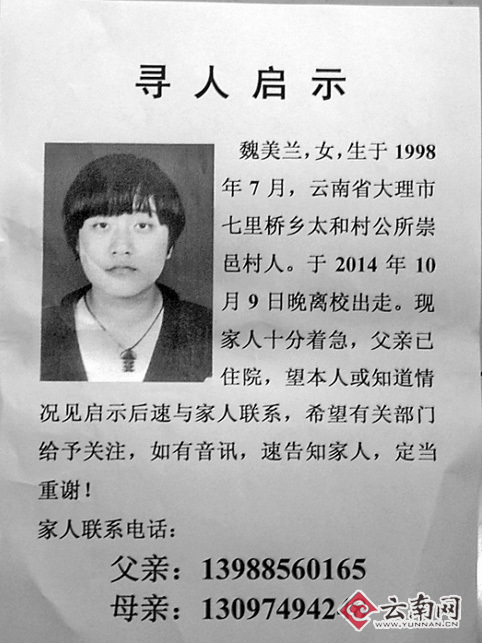 寻人启示
魏美兰,女,生于1998
年7月，云南省大理市
七里桥乡太和村公所崇
邑村人。于2014年10
月9日晚离校出走。现
家人十分着急，父亲已
住院，望本人或知道情
况见启示后速与家人联系，希望有关部门
给予关注，如有音讯，速告知家人，定当
重谢！
家人联系电话：
父亲：13988560165
母亲：1309749424
云南网
WWW.YUNNAN.CN